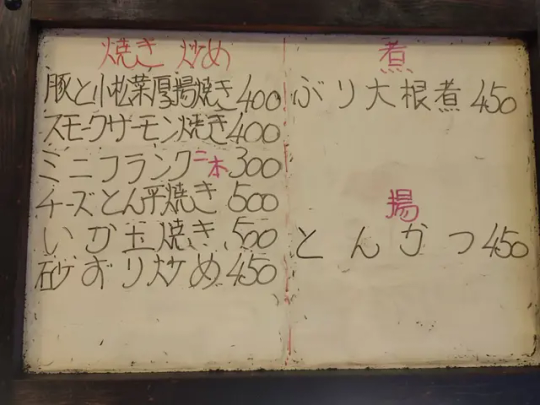 焼き 炒め
豚と小松菜厚揚焼き400
スモークサーモン焼き400
ミニフランク二本300
チーズとん平焼き500
いか玉焼き500
砂ずり炒め450
煮
ぶり大根煮450
揚
とんかつ450